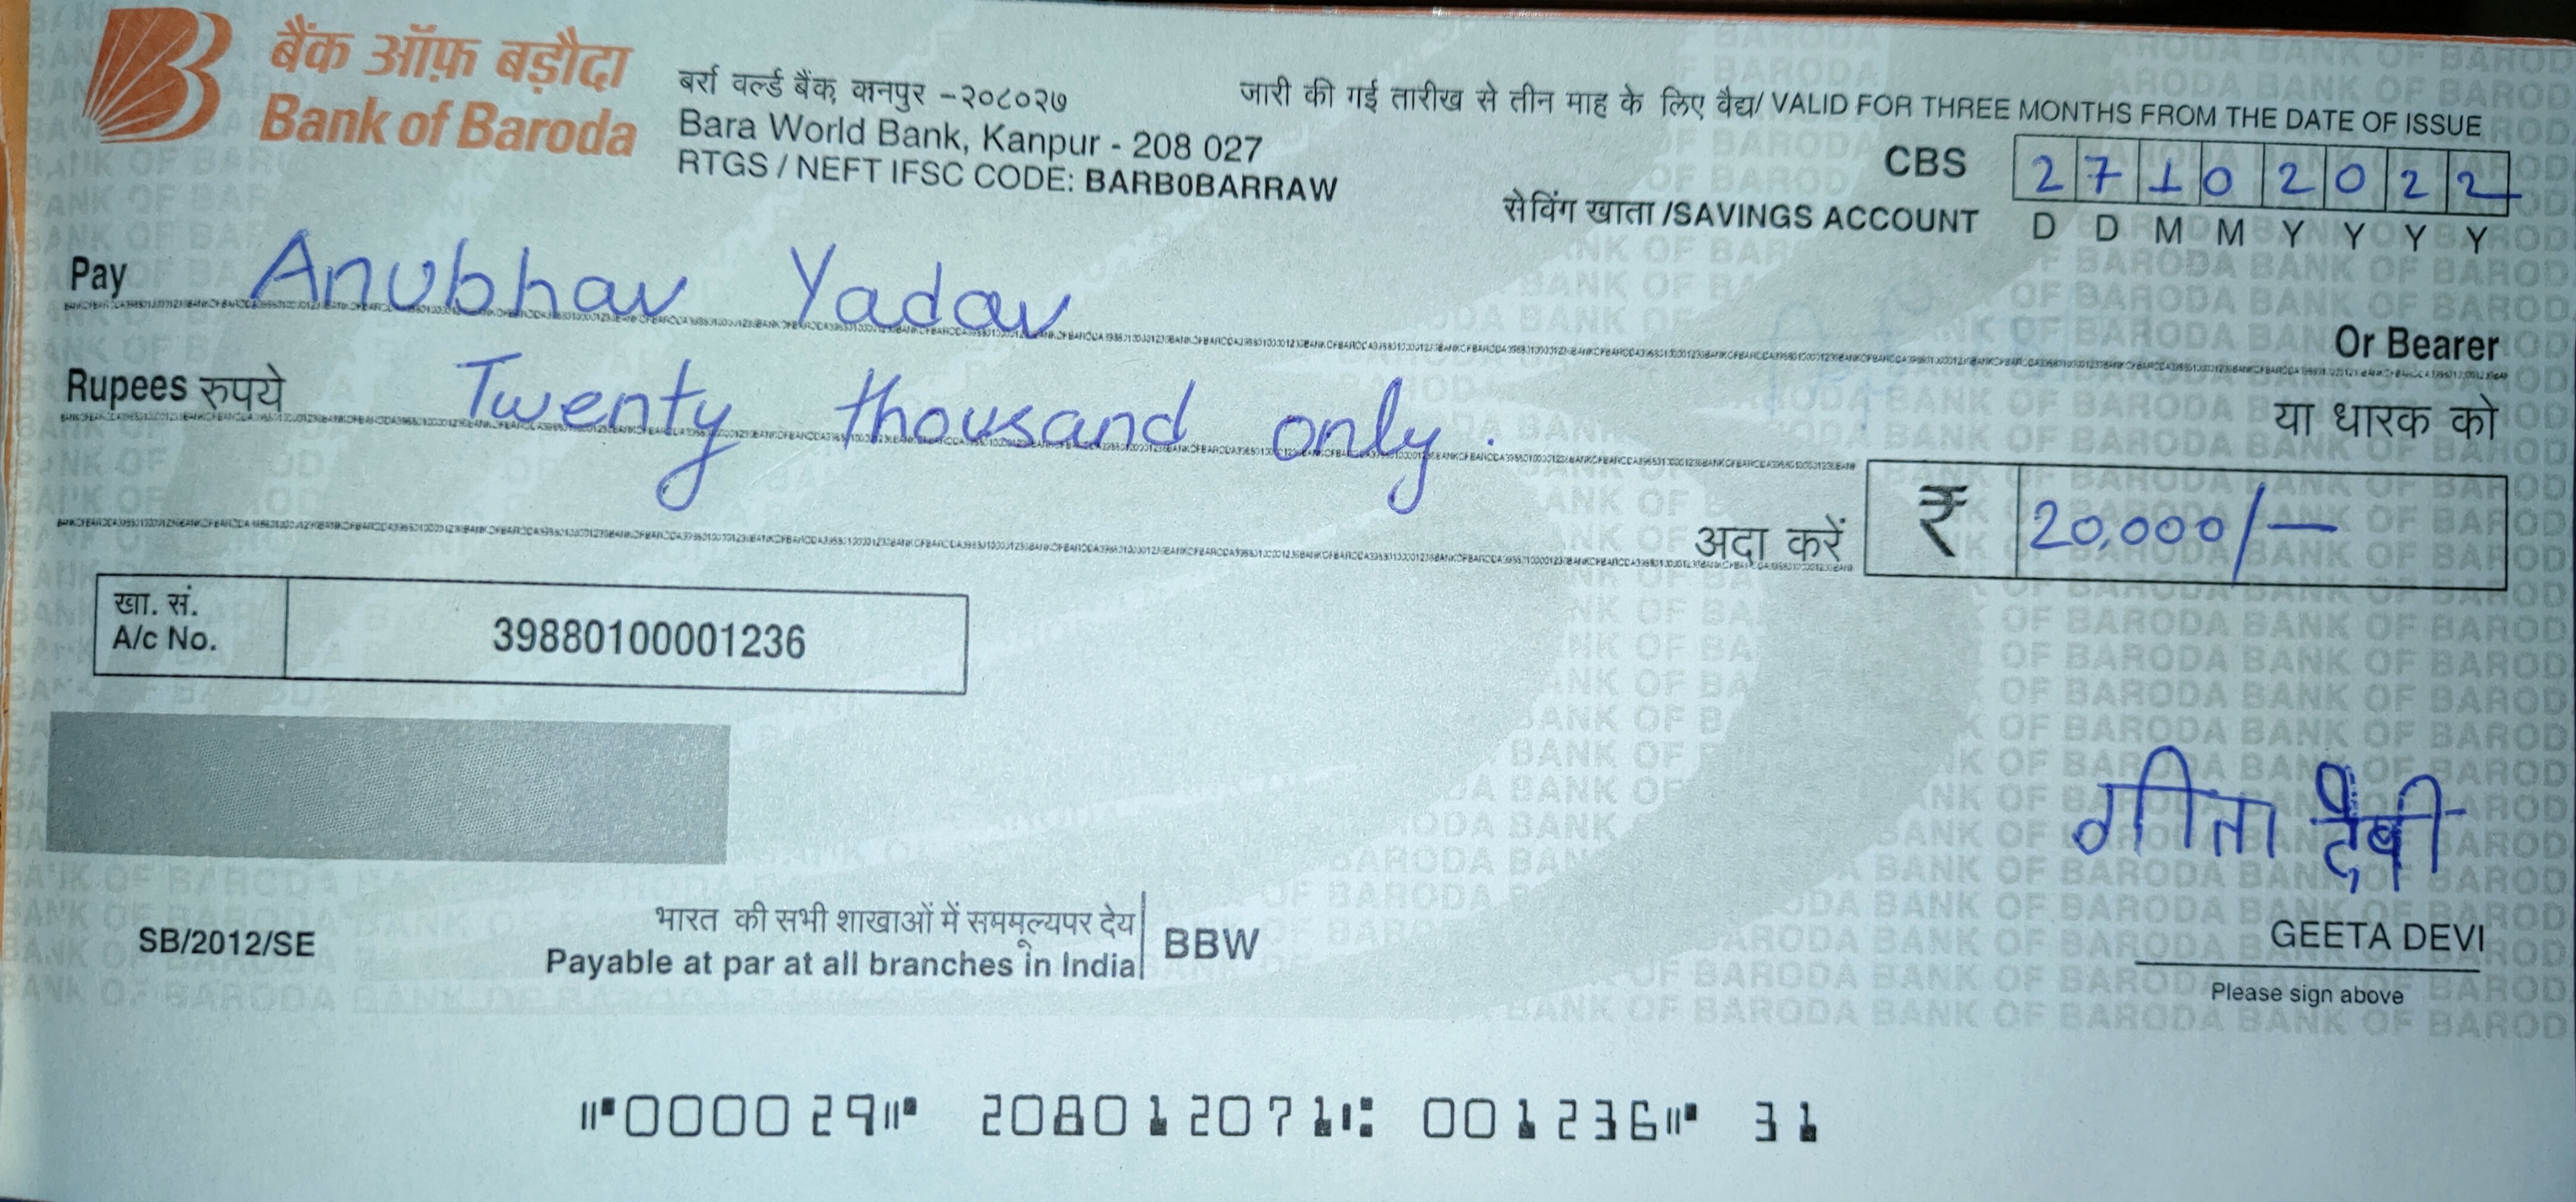 बैंक ऑफ़ बड़ौदा
Bank of Baroda
बर्रा वर्ल्ड बैंक, कानपुर -२०८०२७
Bara World Bank, Kanpur - 208 027
RTGS / NEFT IFSC CODE: BARB0BARRAW
जारी की गई तारीख से तीन माह के लिए वैद्य/ VALID FOR THREE MONTHS FROM THE DATE OF ISSUE
CBS
सेविंग खाता /SAVINGS ACCOUNT
2 7 1 0 2 0 2 2
D D M M Y Y Y Y
Pay Anubhav Yadav
Or Bearer
Rupees रुपये Twenty thousand only.
या धारक को
अदा करें ₹ 20,000/—
खा. सं.
A/c No. 39880100001236
गीता देवी
SB/2012/SE
भारत की सभी शाखाओं में सममूल्यपर देय
Payable at par at all branches in India
BBW
GEETA DEVI
Please sign above
⑈000029⑈ 208012071⑆ 001236⑈ 31